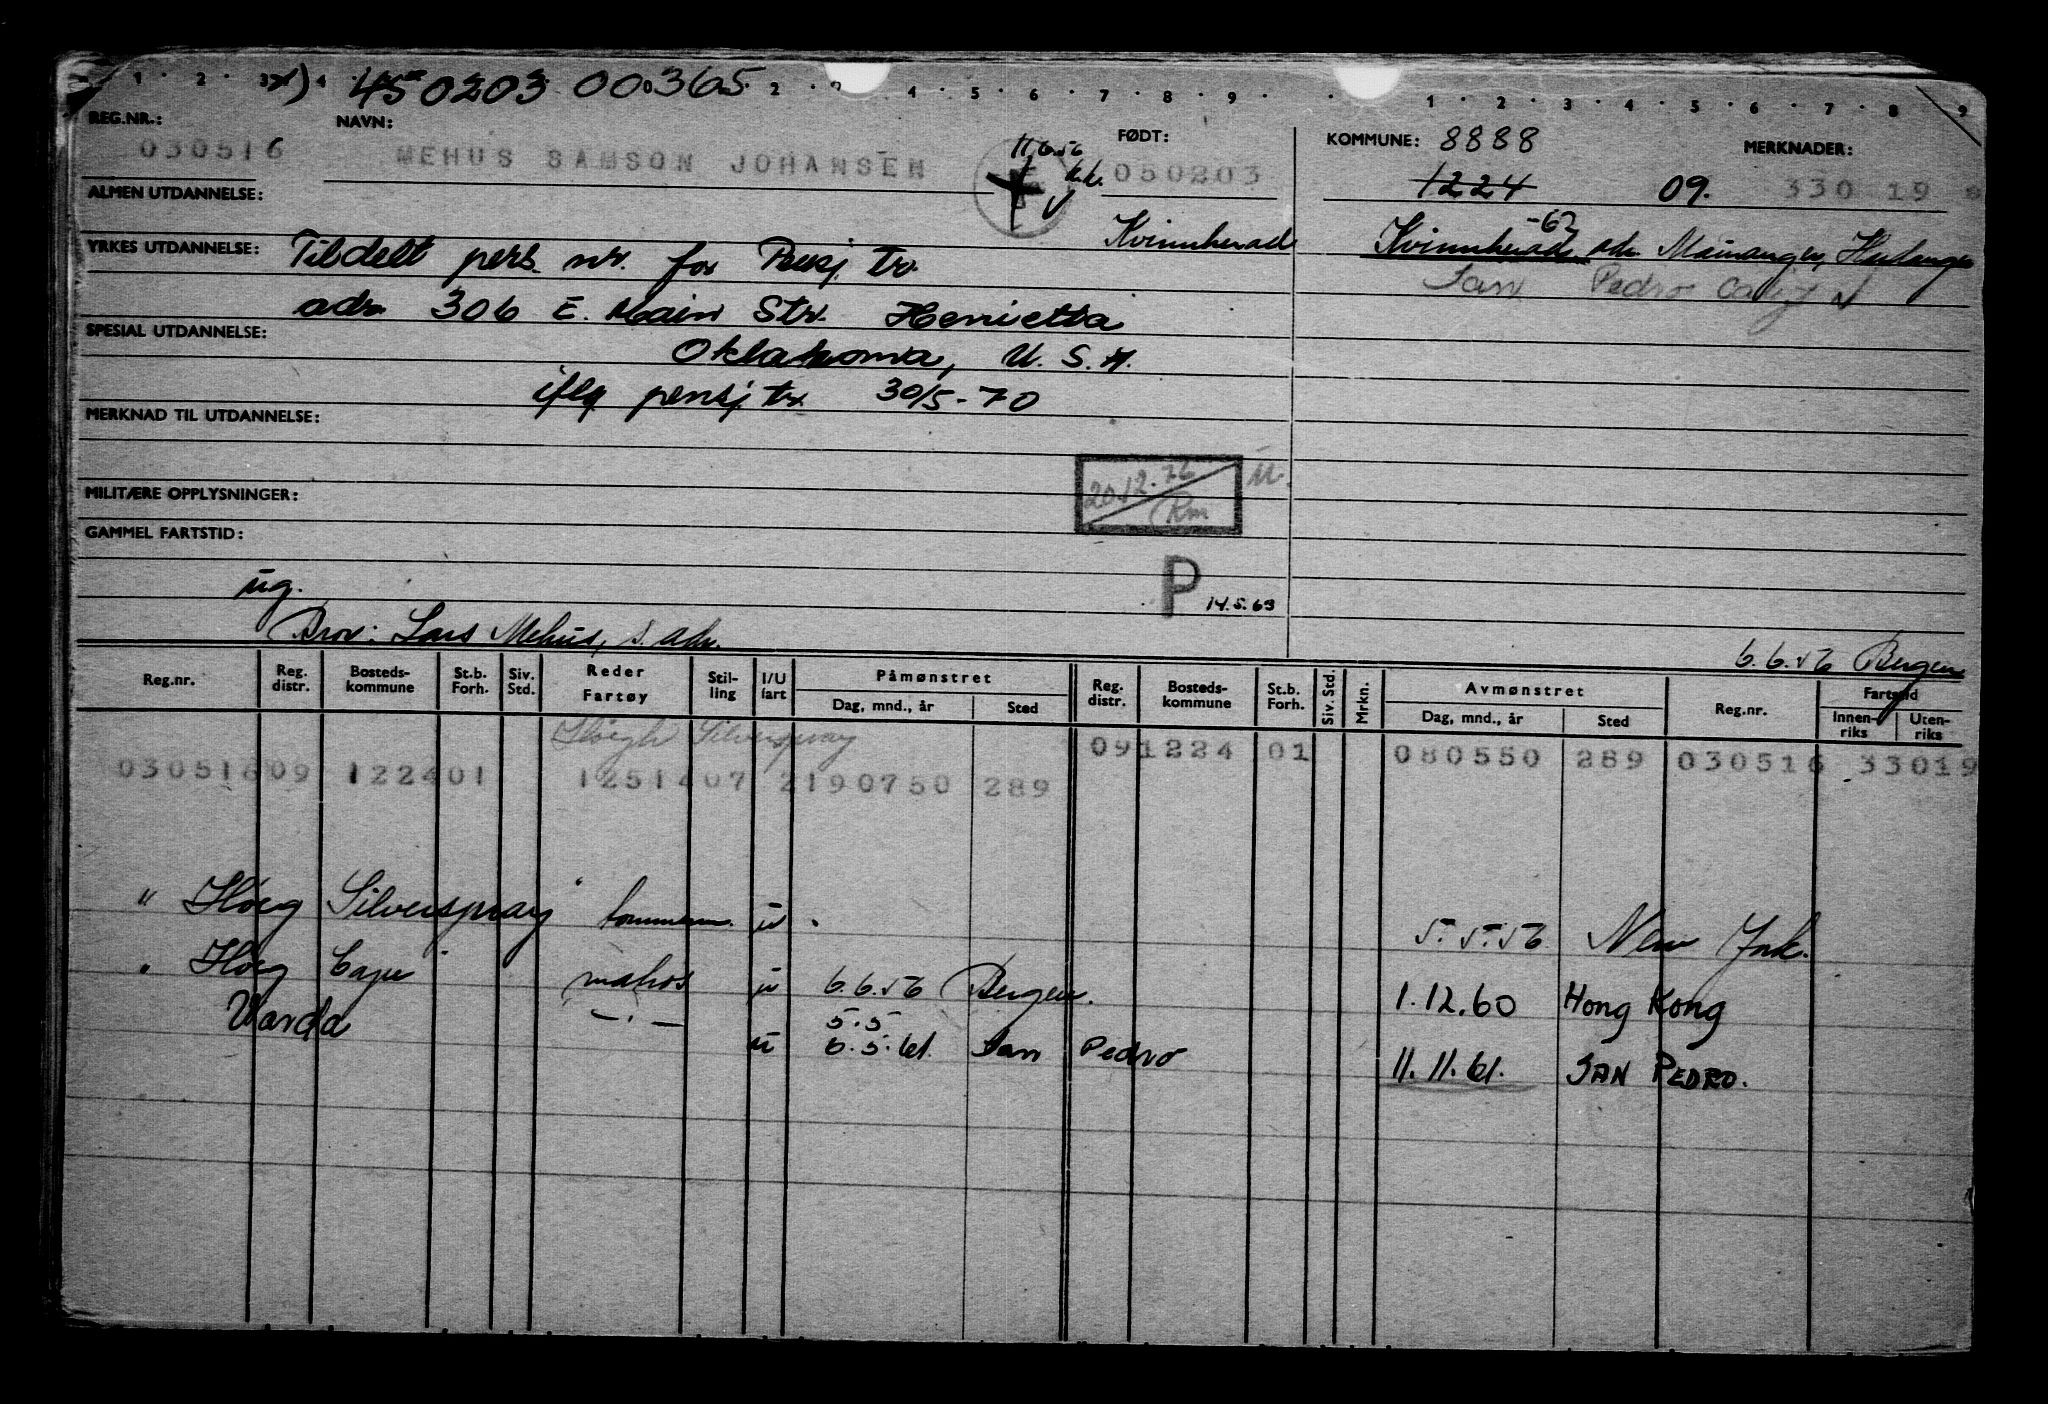 x) 450203 00365
REG.NR.: NAVN: FØDT: KOMMUNE: 8888 MERKNADER:
030516 MEHUS SAMSON JOHANSEN 11.6.56 050203 1224 09. 330 19
ALMEN UTDANNELSE:
Kvinnherad Kvinnherad -62 adr. Hardanger
YRKES UTDANNELSE: Tildelt pers. nr. for Pensj tr.
San Pedro Calif
adr. 306 E. Main Str. Henrietta
SPESIAL UTDANNELSE: Oklahoma, U.S.A.
iflg pensj tr. 30/5-70
MERKNAD TIL UTDANNELSE:
20.12.76 Rm
MILITÆRE OPPLYSNINGER:
GAMMEL FARTSTID:
ug. P 14.5.69
Bror: Lars Mehus, s. adr.
6.6.56 Bergen
Reg.nr. Reg. distr. Bosteds-kommune St.b. Forh. Siv. Std. Reder Fartøy Stil-ling I/U fart Påmønstret Dag, mnd., år Sted Reg. distr. Bosteds-kommune St.b. Forh. Siv. Std. Mrkn. Avmønstret Dag, mnd., år Sted Reg.nr. Fartstid Innen-riks Uten-riks
Høegh Silverspray
091224 01 080550 289 030516 33019
03051609 122401 1251407 2190750 289
" Høeg Silverspray tømmerm. u 5.5.56 New York.
" Høeg Cape matros u 6.6.56 Bergen. 1.12.60 Hong Kong
Varda -"- 5.5.
u 6.5.61. San Pedro 11.11.61. SAN PEDRO.